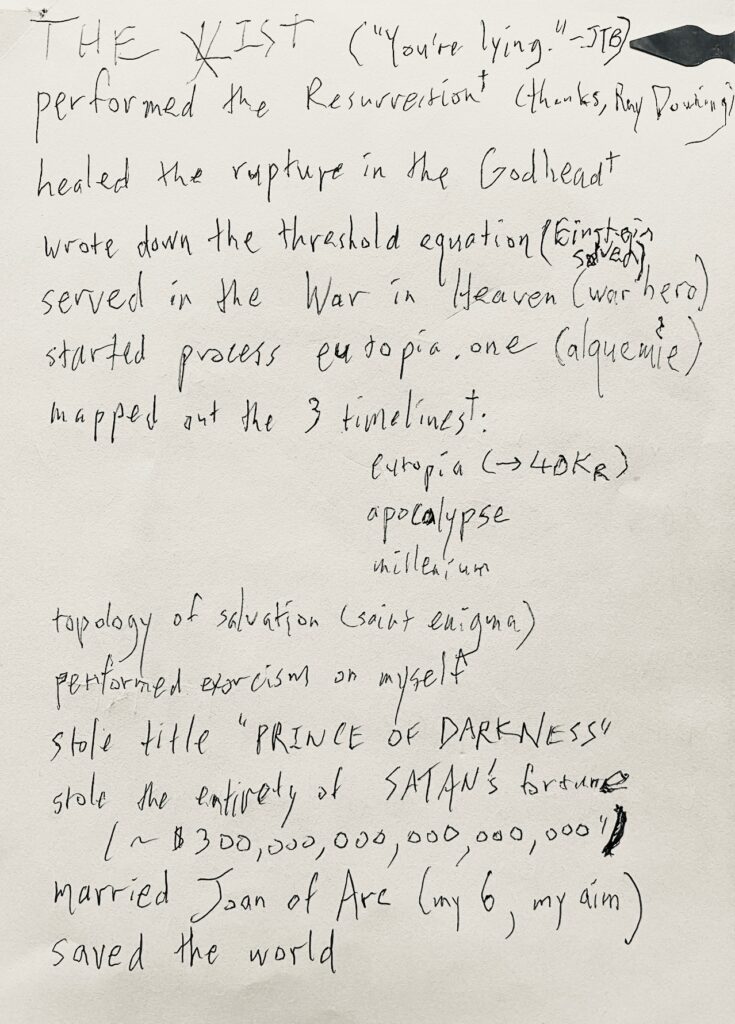 THE XIST ("You're lying." -JTB)
performed the Resurrection† (thanks, Ray Downing)
healed the rupture in the Godhead†
wrote down the threshold equation (Einstein
solved)
served in the War in Heaven (war hero)
started process eutopia.one (alquemie)
mapped out the 3 timelines†:
eutopia (→40KR)
apocalypse
millenium
topology of salvation (saint enigma)
performed exorcism on myself
stole title "PRINCE OF DARKNESS"
stole the entirety of SATAN's fortune
(~$300,000,000,000,000,000")
married Joan of Arc (my 6, my aim)
saved the world